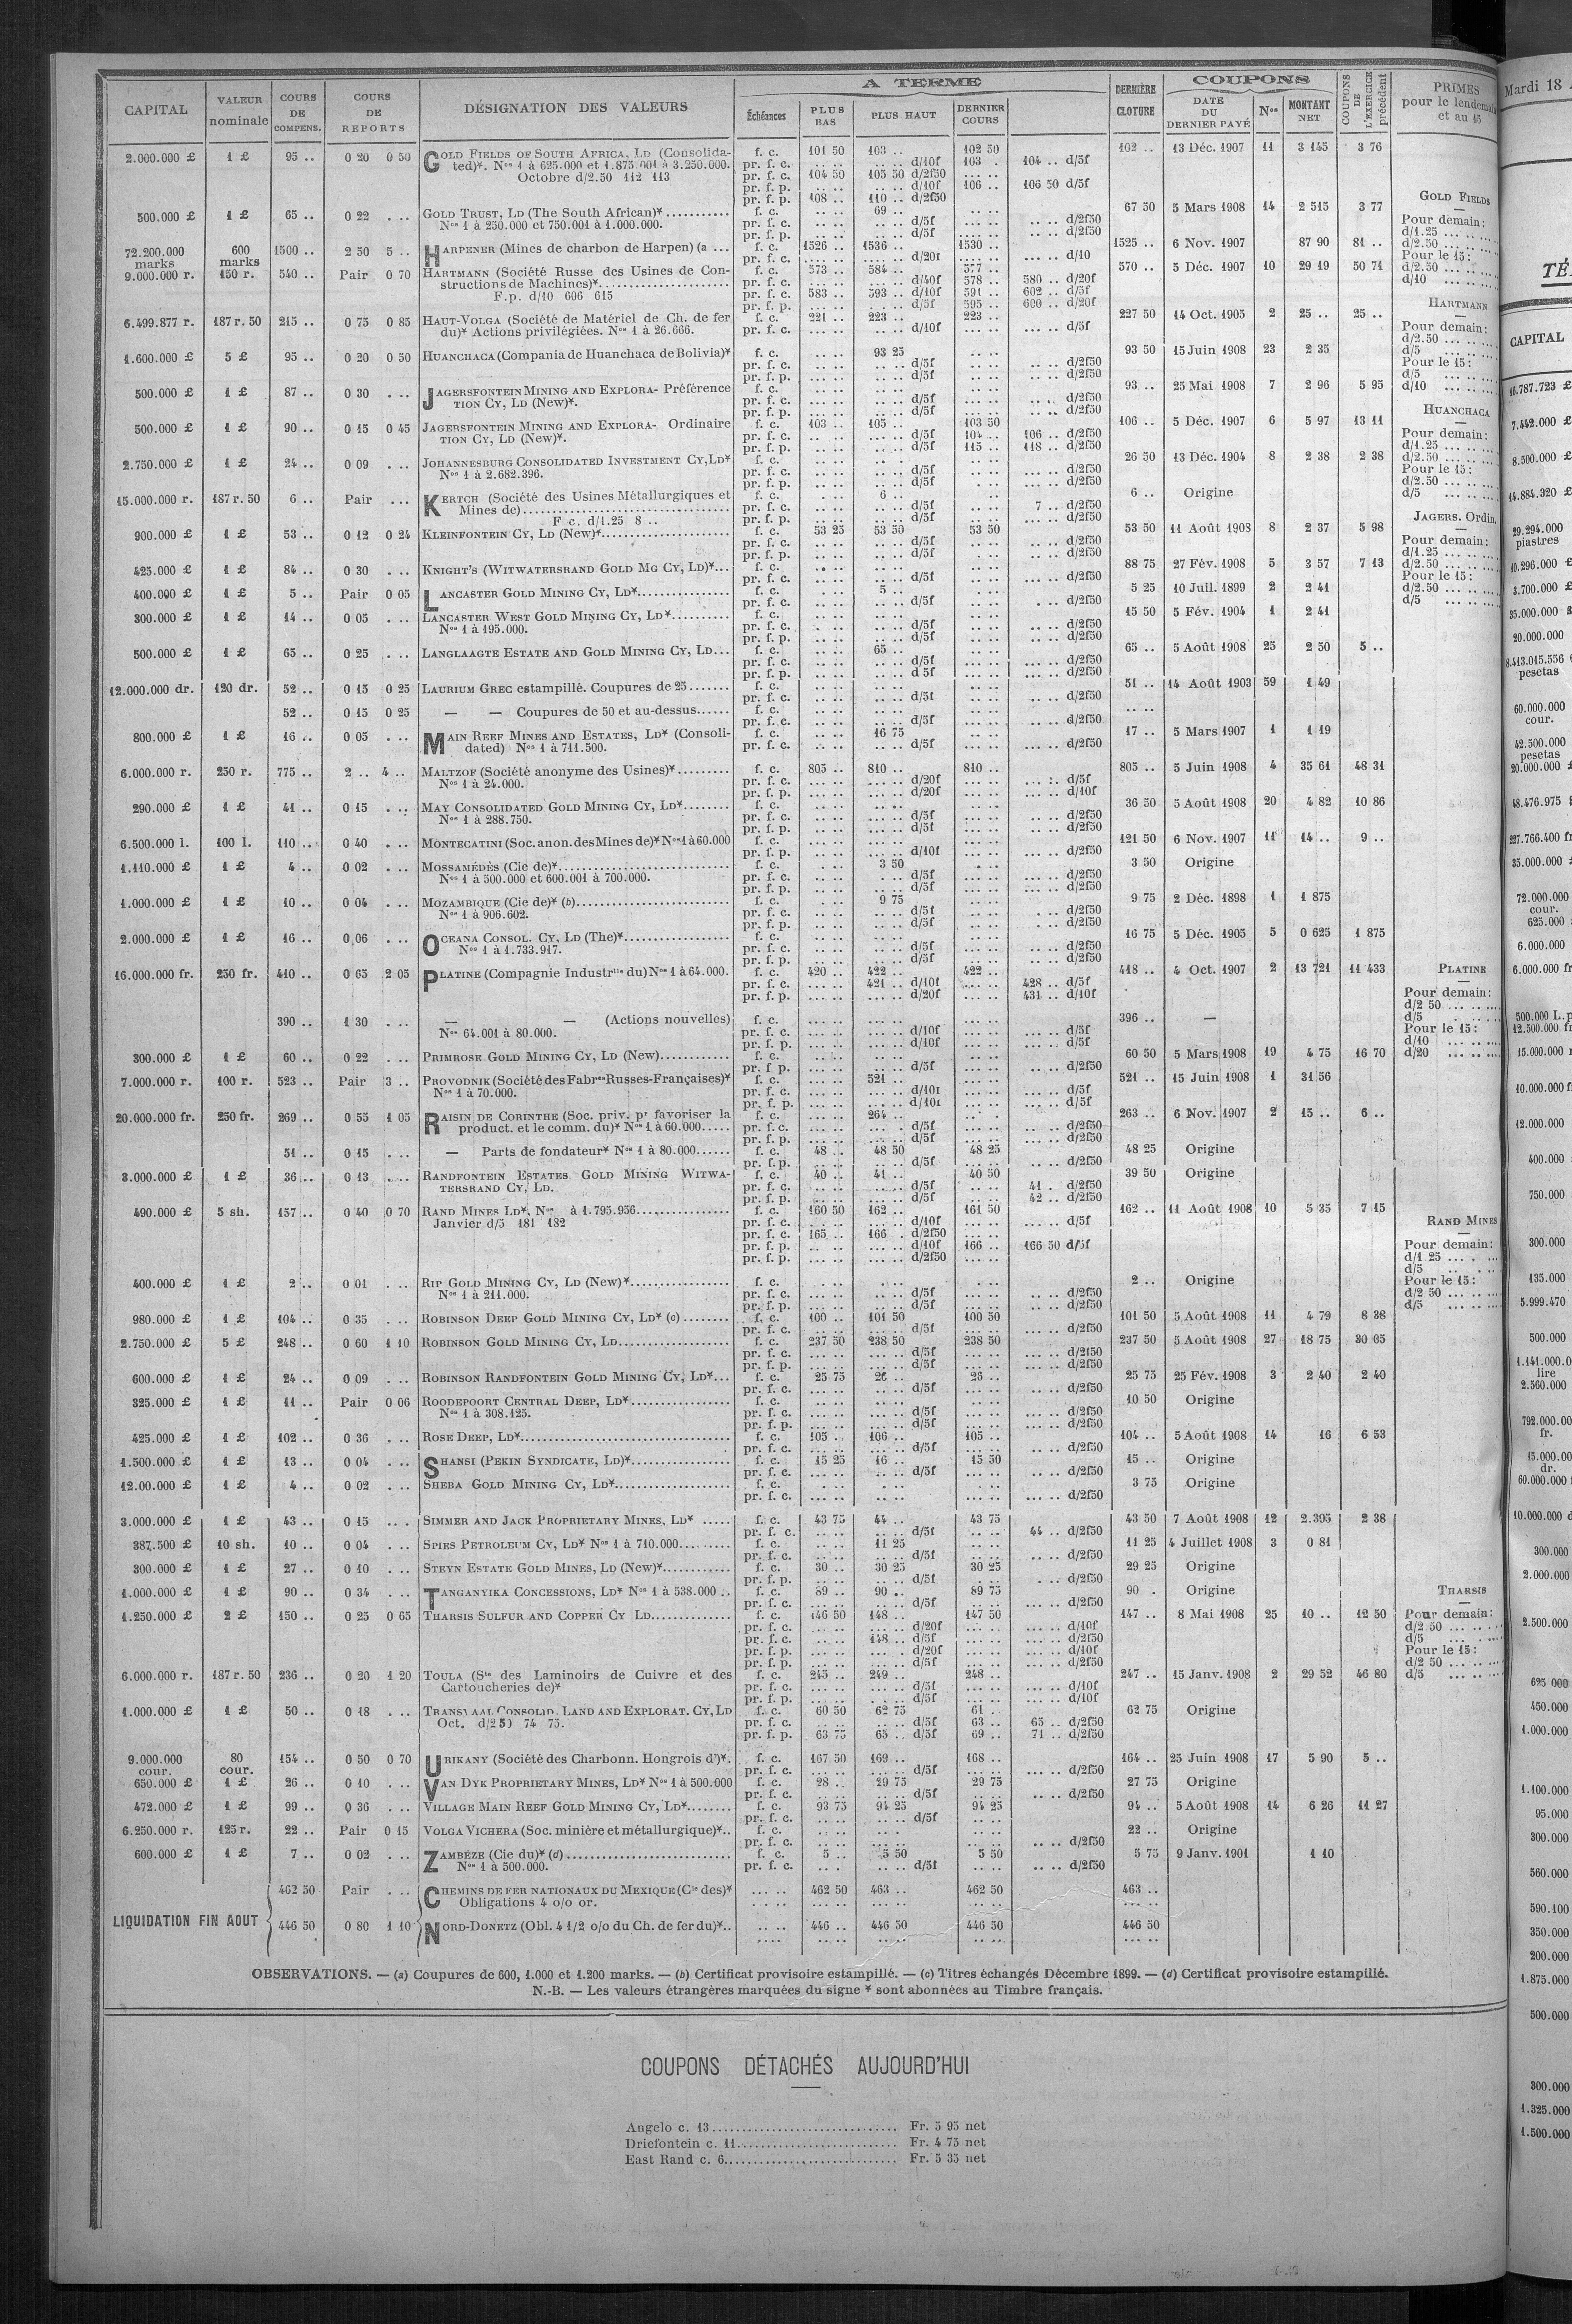 A TERME
COUPONS
CAPITAL
VALEUR nominale
COURS DE COMPENS.
COURS DE REPORTS
DÉSIGNATION DES VALEURS
Échéances
PLUS BAS
PLUS HAUT
DERNIER COURS
DERNIÈRE CLOTURE
DATE DU DERNIER PAYÉ
Nos
MONTANT NET
COUPONS DE L'EXERCICE précédent
PRIMES pour le lendemain et au 15
2.000.000 £ 1 £ 95 .. 0 20 0 50 GOLD FIELDS OF SOUTH AFRICA, LD (Consolida- f. c. 101 50 103 .. 102 50 102 .. 13 Déc. 1907 11 3 145 3 76
ted)*. Nos 1 à 625.000 et 1.875.001 à 3.250.000. pr. f. c. .. .. .. .. d/10f 103 . 104 .. d/5f
Octobre d/2.50 112 113 pr. f. c. 104 50 105 50 d/2f50 ... ..
pr. f. p. .. .. .. .. d/10f 106 .. 106 50 d/5f
pr. f. p. 108 .. 110 .. d/2f50
500.000 £ 1 £ 65 .. 0 22 . .. GOLD TRUST, LD (The South African)* f. c. .. .. 69 .. .. .. 67 50 5 Mars 1908 14 2 515 3 77
Nos 1 à 250.000 et 750.001 à 1.000.000. pr. f. c. .. .. .. .. d/5f .. .. .. .. d/2f50
pr. f. p. .. .. .. .. d/5f .. .. .. .. d/2f50
72.200.000 marks 600 marks 1500 .. 2 50 5 .. HARPENER (Mines de charbon de Harpen) (a ... f. c. 1526 .. 1536 .. 1530 .. 1525 .. 6 Nov. 1907 87 90 81 ..
9.000.000 r. 150 r. 540 .. Pair 0 70 HARTMANN (Société Russe des Usines de Con- f. c. 573 .. 584 .. 577 .. 570 .. 5 Déc. 1907 10 29 19 50 71
structions de Machines)* pr. f. c. ... .. ... .. d/40f 578 .. 580 .. d/20f
F.p. d/10 606 615 pr. f. c. 583 .. 593 .. d/10f 591 .. 602 .. d/5f
pr. f. p. ... .. ... .. d/5f 595 .. 600 .. d/20f
6.499.877 r. 187 r. 50 215 .. 0 75 0 85 HAUT-VOLGA (Société de Matériel de Ch. de fer f. c. 221 .. 223 .. 223 .. 227 50 14 Oct. 1905 2 25 .. 25 ..
du)* Actions privilégiées. Nos 1 à 26.666. pr. f. c. ... .. ... .. d/10f ... .. d/5f
1.600.000 £ 5 £ 95 .. 0 20 0 50 HUANCHACA (Compania de Huanchaca de Bolivia)* f. c. .. .. 93 25 .. .. 93 50 15 Juin 1908 23 2 35
pr. f. c. .. .. d/5f .. .. d/2f50
pr. f. p. .. .. d/5f .. .. d/2f50
500.000 £ 1 £ 87 .. 0 30 . .. JAGERSFONTEIN MINING AND EXPLORA- Préférence f. c. 93 .. 25 Mai 1908 7 2 96 5 95
TION CY, LD (New)*. pr. f. c. d/5f d/2f50
pr. f. p. d/5f d/2f50
500.000 £ 1 £ 90 .. 0 15 0 45 JAGERSFONTEIN MINING AND EXPLORA- Ordinaire f. c. 103 .. 105 .. 103 50 106 .. 5 Déc. 1907 6 5 97 13 11
TION CY, LD (New)*. pr. f. c. d/5f 104 .. 106 .. d/2f50
pr. f. p. d/5f 115 .. 118 .. d/2f50
2.750.000 £ 1 £ 24 .. 0 09 . .. JOHANNESBURG CONSOLIDATED INVESTMENT CY,LD* f. c. 26 50 13 Déc. 1904 8 2 38 2 38
Nos 1 à 2.682.396. pr. f. c. d/5f d/2f50
pr. f. p. d/5f d/2f50
15.000.000 r. 187 r. 50 6 .. Pair . .. KERTCH (Société des Usines Métallurgiques et f. c. 6 .. 6 .. Origine
Mines de) pr. f. c. d/5f 7 .. d/2f50
F c. d/1.25 8 .. pr. f. p. d/5f d/2f50
900.000 £ 1 £ 53 .. 0 12 0 24 KLEINFONTEIN CY, LD (New)* f. c. 53 25 53 50 53 50 53 50 11 Août 1908 8 2 37 5 98
pr. f. c. d/5f d/2f50
pr. f. p. d/5f d/2f50
425.000 £ 1 £ 84 .. 0 30 . .. KNIGHT'S (WITWATERSRAND GOLD MG CY, LD)* f. c. 88 75 27 Fév. 1908 5 3 57 7 13
pr. f. c. d/5f d/2f50
400.000 £ 1 £ 5 .. Pair 0 05 LANCASTER GOLD MINING CY, LD* f. c. 5 .. 5 25 10 Juil. 1899 2 2 41
pr. f. c. d/5f d/2f50
300.000 £ 1 £ 14 .. 0 05 . .. LANCASTER WEST GOLD MINING CY, LD* f. c. 15 50 5 Fév. 1904 1 2 41
Nos 1 à 195.000. pr. f. c. d/5f d/2f50
pr. f. p. d/5f d/2f50
500.000 £ 1 £ 65 .. 0 25 . .. LANGLAAGTE ESTATE AND GOLD MINING CY, LD... f. c. 65 .. 65 .. 5 Août 1908 25 2 50 5 ..
pr. f. c. d/5f d/2f50
pr. f. p. d 5f d/2f50
12.000.000 dr. 120 dr. 52 .. 0 15 0 25 LAURIUM GREC estampillé. Coupures de 25 f. c. 51 .. 14 Août 1903 59 1 49
pr. f. c. d/5f d/2f50
52 .. 0 15 0 25 — — Coupures de 50 et au-dessus f. c. .. ..
pr. f. c. d/5f d/2f50
800.000 £ 1 £ 16 .. 0 05 . .. MAIN REEF MINES AND ESTATES, LD* (Consoli- f. c. 16 75 17 .. 5 Mars 1907 1 1 19
dated) Nos 1 à 711.500. pr. f. c. d/5f d/2f50
6.000.000 r. 250 r. 775 .. 2 .. 4 .. MALTZOF (Société anonyme des Usines)* f. c. 805 .. 810 .. 810 .. 805 .. 5 Juin 1908 4 35 61 48 31
Nos 1 à 24.000. pr. f. c. d/20f d/5f
pr. f. p. d/20f d/10f
290.000 £ 1 £ 41 .. 0 15 . .. MAY CONSOLIDATED GOLD MINING CY, LD* f. c. 36 50 5 Août 1908 20 4 82 10 86
Nos 1 à 288.750. pr. f. c. d/5f d/2f50
pr. f. p. d/5f d/2f50
6.500.000 l. 100 l. 110 .. 0 40 . .. MONTECATINI (Soc. anon. des Mines de)* Nos 1 à 60.000 f. c. 121 50 6 Nov. 1907 11 14 .. 9 ..
pr. f. p. d/10f d/2f50
1.110.000 £ 1 £ 4 .. 0 02 . .. MOSSAMÉDÈS (Cie de)* f. c. 3 50 3 50 Origine
Nos 1 à 500.000 et 600.001 à 700.000. pr. f. c. d/5f d/2f50
pr. f. p. d/5f d/2f50
1.000.000 £ 1 £ 10 .. 0 04 . .. MOZAMBIQUE (Cie de)* (b) f. c. 9 75 9 75 2 Déc. 1898 1 1 875
Nos 1 à 906.602. pr. f. c. d/5f d/2f50
pr. f. p. d/5f d/2f50
2.000.000 £ 1 £ 16 .. 0 06 . .. OCEANA CONSOL. CY, LD (The)* f. c. 16 75 5 Déc. 1905 5 0 625 1 875
Nos 1 à 1.733.917. pr. f. c. d/5f d/2f50
pr. f. p. d/5f d/2f50
16.000.000 fr. 250 fr. 410 .. 0 65 2 05 PLATINE (Compagnie Industrlle du) Nos 1 à 64.000. f. c. 420 .. 422 .. 422 .. 418 .. 4 Oct. 1907 2 13 721 11 433
pr. f. c. 421 .. d/10f 428 .. d/5f
pr. f. p. d/20f 431 .. d/10f
390 .. 1 30 . .. — — (Actions nouvelles) f. c. 396 .. —
Nos 64.001 à 80.000. pr. f. c. d/10f d/5f
pr. f. p. d/10f d/5f
300.000 £ 1 £ 60 .. 0 22 . .. PRIMROSE GOLD MINING CY, LD (New) f. c. 60 50 5 Mars 1908 19 4 75 16 70
pr. f. p. d/5f d/2f50
7.000.000 r. 100 r. 523 .. Pair 3 .. PROVODNIK (Société des Fabres Russes-Françaises)* f. c. 521 .. 521 .. 15 Juin 1908 1 31 56
Nos 1 à 70.000. pr. f. c. d/10f d/5f
pr. f. p. d/10f d/5f
20.000.000 fr. 250 fr. 269 .. 0 55 1 05 RAISIN DE CORINTHE (Soc. priv. pr favoriser la f. c. 264 .. 263 .. 6 Nov. 1907 2 15 .. 6 ..
product. et le comm. du)* Nos 1 à 60.000 pr. f. c. d/5f d/2f50
pr. f. p. d/5f d/2f50
51 .. 0 15 . .. — Parts de fondateur* Nos 1 à 80.000 f. c. 48 .. 48 50 48 25 48 25 Origine
pr. f. p. d/5f d/2f50
3.000.000 £ 1 £ 36 .. 0 13 . .. RANDFONTEIN ESTATES GOLD MINING WITWA- f. c. 40 .. 41 .. 40 50 39 50 Origine
TERSRAND CY, LD. pr. f. c. d/5f 41 . d/2f50
pr. f. p. d/5f 42 .. d/2f50
490.000 £ 5 sh. 157 .. 0 40 0 70 RAND MINES LD*. Nos à 1.795.956 f. c. 160 50 162 .. 161 50 162 .. 11 Août 1908 10 5 35 7 15
Janvier d/5 181 182 pr. f. c. d/10f d/5f
pr. f. c. 165 .. 166 . d/2f50
pr. f. p. d/10f 166 .. 166 50 d/5f
pr. f. p. d/2f50
400.000 £ 1 £ 2 .. 0 01 . .. RIP GOLD MINING CY, LD (New)* f. c. 2 .. Origine
Nos 1 à 211.000. pr. f. c. d/5f d/2f50
pr. f. p. d/5f d/2f50
980.000 £ 1 £ 104 .. 0 35 . .. ROBINSON DEEP GOLD MINING CY, LD* (c) f. c. 100 .. 101 50 100 50 101 50 5 Août 1908 11 4 79 8 38
pr. f. c. d/5f d/2f50
2.750.000 £ 5 £ 248 .. 0 60 1 10 ROBINSON GOLD MINING CY, LD f. c. 237 50 238 50 238 50 237 50 5 Août 1908 27 18 75 30 05
pr. f. c. d/5f d/2f50
pr. f. p. d/5f d/2f50
600.000 £ 1 £ 24 .. 0 09 . .. ROBINSON RANDFONTEIN GOLD MINING CY, LD* f. c. 25 75 26 .. 26 .. 25 75 25 Fév. 1908 3 2 40 2 40
pr. f. c. d/5f d/2f50
325.000 £ 1 £ 11 .. Pair 0 06 ROODEPOORT CENTRAL DEEP, LD* f. c. 10 50 Origine
Nos 1 à 308.125. pr. f. c. d/5f d/2f50
pr. f. p. d/5f d/2f50
425.000 £ 1 £ 102 .. 0 36 . .. ROSE DEEP, LD* f. c. 105 .. 106 .. 105 .. 104 .. 5 Août 1908 14 16 6 53
pr. f. c. d/5f d/2f50
1.500.000 £ 1 £ 13 .. 0 04 . .. SHANSI (PEKIN SYNDICATE, LD)* f. c. 15 25 16 .. 15 50 15 .. Origine
pr. f. c. d/5f d/2f50
12.00.000 £ 1 £ 4 .. 0 02 . .. SHEBA GOLD MINING CY, LD* f. c. 3 75 Origine
pr. f. c. d/2f50
3.000.000 £ 1 £ 43 .. 0 15 . .. SIMMER AND JACK PROPRIETARY MINES, LD* f. c. 43 75 44 .. 43 75 43 50 7 Août 1908 12 2.395 2 38
pr. f. c. d/5f 44 .. d/2f50
387.500 £ 10 sh. 10 .. 0 04 . .. SPIES PETROLEUM CY, LD* Nos 1 à 710.000 f. c. 11 25 11 25 4 Juillet 1908 3 0 81
pr. f. c. d/5f d/2f50
300.000 £ 1 £ 27 .. 0 10 . .. STEYN ESTATE GOLD MINES, LD (New)* f. c. 30 .. 30 25 30 25 29 25 Origine
pr. f. p. d/5f d/2f50
1.000.000 £ 1 £ 90 .. 0 34 . .. TANGANYIKA CONCESSIONS, LD* Nos 1 à 538.000 .. f. c. 89 .. 90 .. 89 75 90 . Origine
pr. f. c. d/5f d/2f50
1.250.000 £ 2 £ 150 .. 0 25 0 65 THARSIS SULFUR AND COPPER CY LD f. c. 146 50 148 .. 147 50 147 .. 8 Mai 1908 25 10 .. 12 50
pr. f. c. d/20f d/10f
pr. f. c. 148 .. d/5f d/2f50
pr. f. p. d/20f d/10f
pr. f. p. d/5f d/2f50
6.000.000 r. 187 r. 50 236 .. 0 20 1 20 TOULA (Sté des Laminoirs de Cuivre et des f. c. 245 .. 249 .. 248 .. 247 .. 15 Janv. 1908 2 29 52 46 80
Cartoucheries de)* pr. f. c. d/5f d/10f
pr. f. p. d/5f d/10f
1.000.000 £ 1 £ 50 .. 0 18 . .. TRANSVAAL CONSOLID. LAND AND EXPLORAT. CY, LD f. c. 60 50 62 75 61 .. 62 75 Origine
Oct. d/2 5) 74 75. pr. f. c. d/5f 63 .. 65 .. d/2f50
pr. f. p. 63 75 65 .. d/5f 69 .. 71 .. d/2f50
9.000.000 cour. 80 cour. 154 .. 0 50 0 70 URIKANY (Société des Charbonn. Hongrois d')*. f. c. 167 50 169 .. 168 .. 164 .. 25 Juin 1908 17 5 90 5 ..
pr. f. c. d/5f d/2f50
650.000 £ 1 £ 26 .. 0 10 . .. VAN DYK PROPRIETARY MINES, LD* Nos 1 à 500.000 f. c. 28 .. 29 75 29 75 27 75 Origine
pr. f. c. d/5f d/2f50
472.000 £ 1 £ 99 .. 0 36 . .. VILLAGE MAIN REEF GOLD MINING CY, LD* f. c. 93 75 94 25 94 25 94 .. 5 Août 1908 14 6 26 11 27
pr. f. c. d/5f
6.250.000 r. 125 r. 22 .. Pair 0 15 VOLGA VICHERA (Soc. minière et métallurgique)*.. f. c. 22 .. Origine
pr. f. c. d/2f50
600.000 £ 1 £ 7 .. 0 02 . .. ZAMBÈZE (Cie du)* (d) f. c. 5 .. 5 50 5 50 5 75 9 Janv. 1901 1 10
Nos 1 à 500.000. pr. f. c. d/5f d/2f50
LIQUIDATION FIN AOUT
462 50 Pair . .. CHEMINS DE FER NATIONAUX DU MEXIQUE (Cie des)* ... .. 462 50 463 .. 462 50 463 ..
Obligations 4 o/o or.
446 50 0 80 1 10 NORD-DONETZ (Obl. 4 1/2 o/o du Ch. de fer du)*.. 446 .. 446 50 446 50 446 50
GOLD FIELDS
Pour demain:
d/1.25
d/2.50
Pour le 15:
d/2.50
d/10
HARTMANN
Pour demain:
d/2.50
d/5
Pour le 15:
d/5
d/10
HUANCHACA
Pour demain:
d/1.25
d/2.50
Pour le 15:
d/2.50
d/5
JAGERS. Ordin.
Pour demain:
d/1.25
d/2.50
Pour le 15:
d/2.50
d/5
PLATINE
Pour demain:
d/2 50
d/5
Pour le 15:
d/10
d/20
RAND MINES
Pour demain:
d/1 25
d/5
Pour le 15:
d/2 50
d/5
THARSIS
Pour demain:
d/2 50
d/5
Pour le 15:
d/2 50
d/5
OBSERVATIONS. — (a) Coupures de 600, 1.000 et 1.200 marks. — (b) Certificat provisoire estampillé. — (c) Titres échangés Décembre 1899. — (d) Certificat provisoire estampillé.
N.-B. — Les valeurs étrangères marquées du signe * sont abonnées au Timbre français.
COUPONS DÉTACHÉS AUJOURD'HUI
Angelo c. 13 Fr. 5 95 net
Driefontein c. 11 Fr. 4 75 net
East Rand c. 6 Fr. 5 35 net
Mardi 18
CAPITAL
16.787.723 £
7.442.000 £
8.500.000 £
14.884.320 £
29.294.000
piastres
10.296.000 £
3.700.000 £
35.000.000
20.000.000
8.413.015.556
pesetas
60.000.000
cour.
42.500.000
pesetas
20.000.000
48.476.975
227.766.400 fr
35.000.000
72.000.000
cour.
625.000
6.000.000
6.000.000 fr
500.000 L.
12.500.000 fr
15.000.000
10.000.000 f
12.000.000
400.000
750.000
300.000
135.000
5.999.470
500.000
1.141.000.0
lire
2.560.000
792.000.00
fr.
15.000.00
dr.
60.000.000
10.000.000 d
300.000
2.000.000
2.500.000
625 000
450.000
1.000.000
1.100.000
95.000
300.000
560.000
590.100
350.000
200.000
1.875.000
500.000
300.000
1.325.000
1.500.000